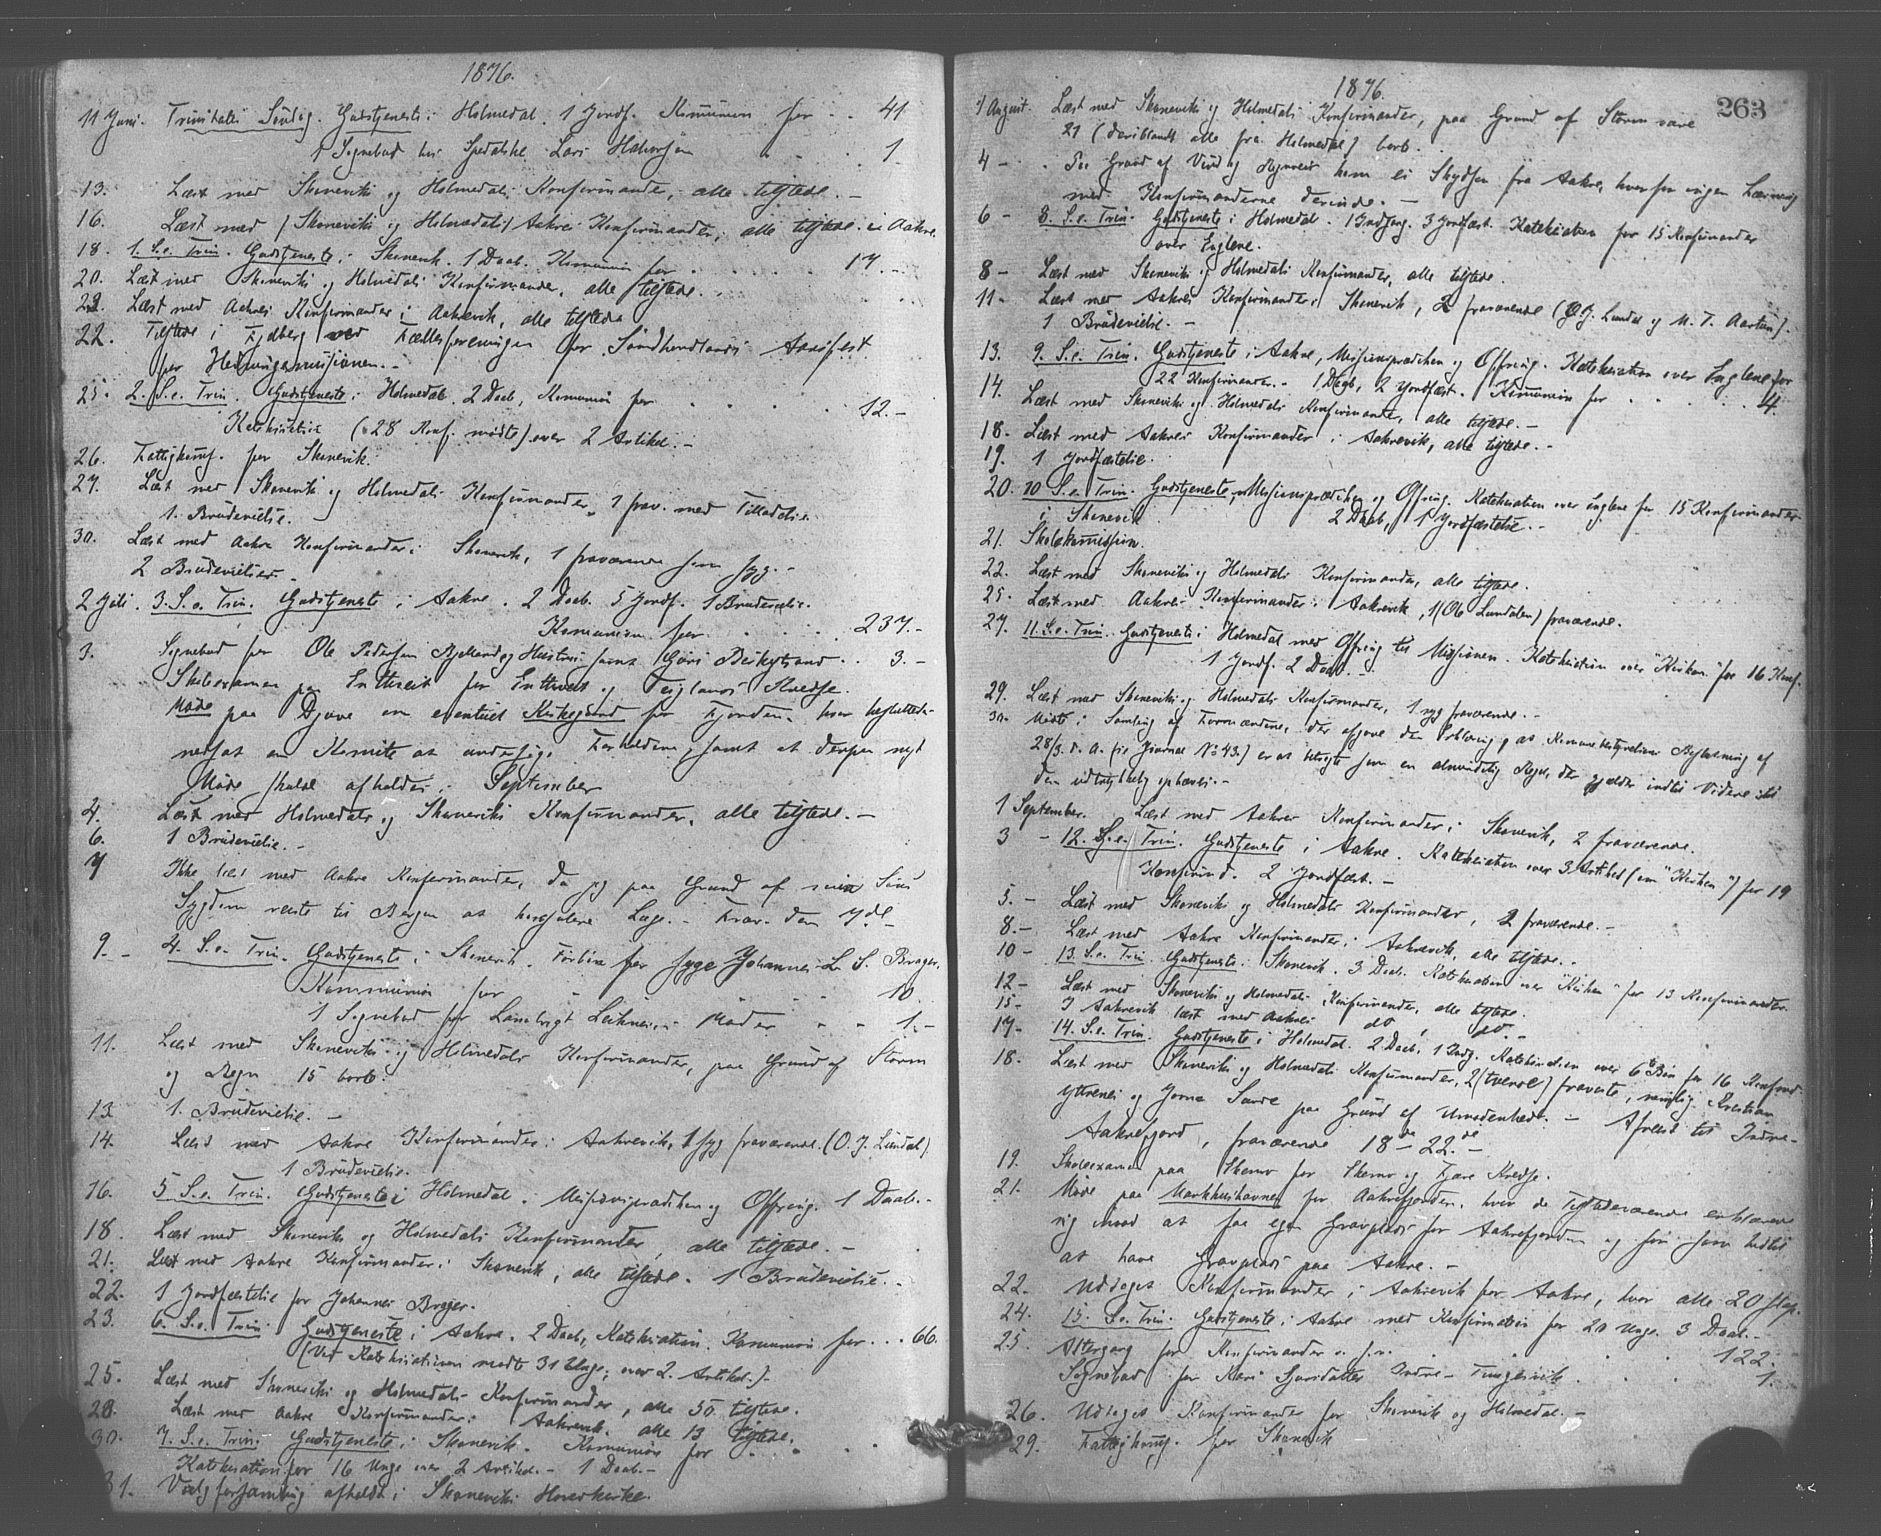 1876.
11 Juni. Trinitatis Söndag. Gudstjeneste i Holmedal. 1 Jordf. Komunion for . . 41
1 Sognebud hos Spedalske Lars Halvorsen . . . 1
13. Læst med Skonevigs og Holmedals Konfirmander, alle tilstede. –
16. Læst med (Skonevigs og Holmedals) Aakres Konfirmander, alle tilstede i Aakre.
18. 1. S. e. Trin. Gudstjeneste i Skonevik. 1 Daab. Komunion for . . . . 17. –
20. Læst med Skoneviks og Holmedals Konfirmander, alle tilstede.
Læst med Aakres Konfirmander i Aakrevik, alle tilstede
22. Tilstede i Fjelberg ved Fællesforeningen for Söndhordlands Aarsfest
for Hedningemissionen. –
25. 2. S. e. Trin. Gudstjeneste i Holmedal. 2 Daab, Komunion for . . . . 12. –
Katekisation (28 Konf. mödte) over 2 Artikel. –
26. Fattigkomm. for Skonevik.
27. Læst med Skoneviks og Holmedals Konfirmander, 1 frav. med Tilladelse.
1. Brudevielse.
30. Læst med Aakre Konfirmander i Skonevik, 1 fraværende som syg. –
2 Brudevielser. –
2 Juli. 3. S. e. Trin. Gudstjeneste i Aakre. 2 Daab. 5 Jordf. 1 Brudevielse.
Komunion for . . . . . 237. –
3. Sognebud for Ole Pedersen og Hustru samt . . 3. –
Skoleexamen paa for og Teiglands Kredse.
Möde paa om eventuel Kirkegaard for Fjorden, hvor besluttede
nedsat en Komite at undersöge Forholdene, samt at derpaa nyt
Möde skulde afholdes i September
4. Læst med Holmedals og Skoneviks Konfirmander, alle tilstede. –
6. 1 Brudevielse. –
7 Ikke læst med Aakre Konfirmander, da jeg paa Grund af min Söns
Sygdom reiste til Bergen at konsulere Læge. –
9. – 4. S. e. Trin. Gudstjeneste i Skonevik. Forbön for syge Johannes L. S. Brager.
Kommunion for . . . 10
1 Sognebud for Moder . . 1. –
11. Læst med Skoneviks og Holmedals Konfirmander, paa Grund af Storm
og Regn 15 borte.
13. 1. Brudevielse. –
14. Læst med Aakre Konfirmander i Aakrevik, 1 syg fraværende. (O. J. Lundal)
1 Brudevielse.
16. 5 S. e. Trin. Gudstjeneste i Holmedal. Missionsprædiken og Offring. 1 Daab. –
18. Læst med Skoneviks og Holmedals Konfirmander, alle tilstede. –
21. Læst med Aakre Konfirmander i Skonevik, alle tilstede. 1 Brudevielse. –
22. 1 Jordfæstelse for Johannes Brager.
23. 6. S. e. Trin. Gudstjeneste i Aakre. 2 Daab, Katekisation. Komunion for . . . 66.
(Ved Katekisationen mödte 31 Unge, over 2. Artikel.) –
25. Læst med Skoneviks og Holmedals Konfirmander, alle 50 tilstede.
28. Læst med Aakre Konfirmander i Aakrevik. alle 13 tilstede.
30. 7. S. e. Trin. Gudstjeneste i Skonevik. Komunion for . . .
Katekisation for 16 Unge over 2 Artikel. – 1 Daab. –
31. Valgforsamling afholdt i Skoneviks Hovedkirke.
1876.
263
1 August. Læst med Skoneviks og Holmedals Konfirmander, paa Grund af Storm vare
21 (deriblandt alle fra Holmedal) borte.
4 – Paa Grund af Vind og Regnveir kom ei Skydsen fra Aakre, hvorfor ingen Læsning
med Konfirmanderne derinde. –
6 – 8. S. e. Trin. Gudstjeneste i Holmedal. 1 Indgang. 3 Jordfæst. Katekisation for 15 Konfirmander
over Englene.
8 – Læst med Skoneviks og Holmedals Konfirmander, alle tilstede.
11 – Læst med Aakres Konfirmander i Skonevik, 2 fraværende (O. J. Lundal og M. T. Aartun).
1 Brudevielse. –
13. 9. S. e. Trin. Gudstjeneste i Aakre, Missionsprædiken og Offring. Katekisation over Englene for
22 Konfirmander. – 1 Daab, 2 Jordfæst. Komunion for . . . . 4.
14. Læst med Skoneviks og Holmedals Konfirmander, alle tilstede. –
18. Læst med Aakres Konfirmander i Aakrevik, alle tilstede. –
19. 1 Jordfæstelse.
20. 10 S. e. Trin. Gudstjeneste, Missionsprædiken og Offring. Katekisation over Englene for 15 Konfirmander
i Skonevik 2 Daab, 1 Jordfæstelse. –
21. Skolekommission.
22. Læst med Skoneviks og Holmedals Konfirmander, alle tilstede.
25. Læst med Aakres Konfirmander i Aakrevik, 1 (Ole Lundalen) fraværende.
27. 11. S. e. Trin. Gudstjeneste i Holmedal med Offring til Missionen. Katekisation over "Kirken" for 16 Konf.
1 Jordf. 2 Daab. –
29. Læst med Skoneviks og Holmedals Konfirmander, 1 syg fraværende. –
30. Mödte i Samling af Formændene, der afgave den Erklæring, at Kommunebestyrelsens Beslutning af
28/3. d. A. (se Journal No 43.) er at betragte som en almindelig Regel, der gjælder indtil Videre til
den udtrykkelig ophæves. –
1 September. Læst med Aakres Konfirmander i Skonevik, 2 fraværende.
3 – 12. S. e. Trin. Gudstjeneste i Aakre. Katekisation over 3 Artikel (om "Kirken") for 19
Konfirmd. 2 Jordfæst. –
5. – Læst med Skoneviks og Holmedals Konfirmander, 2 fraværende. –
8. – Læst med Aakre Konfirmander i Aakrevik, alle tilstede. –
10 – 13. S. e. Trin. Gudstjeneste i Skonevik. 3 Daab. Katekisation over "Kirken" for 13 Konfirmander.
12 – Læst med Skoneviks og Holmedals Konfirmander, alle tilstede.
15 – I Aakrevik læst med Aakres do , do. –
17 – 14. S. e. Trin. Gudstjeneste i Holmedal. 2 Daab, 1 Indg. Katekisation over 6te Bön for 16 Konfirmd
18. Læst med Skoneviks og Holmedals Konfirmander, 2 (tvende) fraviste, nemlig Kristian
og Jorna Sande paa Grund af Umodenhed. – Afreist til Indre-
Aakrefjord, fraværende 18de – 22de. –
19. Skoleexamen paa for og Kredse.
21. Möde paa Markhushavnen for Aakrefjorden, hvor de Tilstedeværende erklærede
sig imod at faa egen Gravplads for Aakrefjorden og for som hidtil
at have Gravplads paa Aakre. –
22. Udtoges Konfirmander i Aakrevik for Aakre, hvor alle 20 slap.
24. 15. S. e. Trin. Gudstjeneste i Aakre med Konfirmation for 20 Unge. 3 Daab. –
25. Altergang for Konfirmander o. fl. . . . 122.
Sognebud for Kari Sjursdatter Indre- . . . . 1.
26. Udtoges Konfirmander for Skonevik og Holmedal. –
29. Fattigkomm. for Skonevik